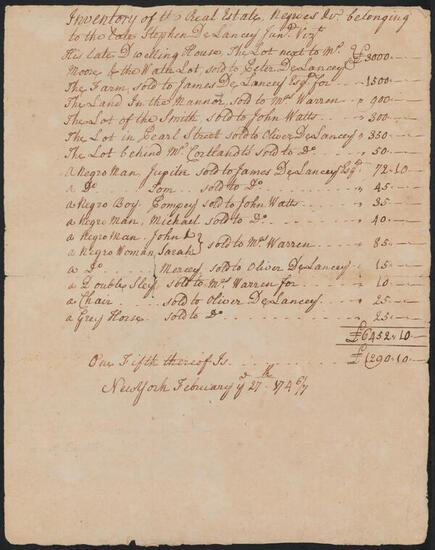 Inventory of the Real Estate, Negroes &c. belonging
to the Late Stephen DeLancey Junr. Vizt.
His late Dwelling House, The Lot next to Mr.
Moore & the Water Lot, sold to Peter DeLancey } £3000
The Farm, sold to James DeLancey Esqr. for " 1500
The Land In the Mannor, sold to Mrs Warren " 900
The Lot of the Smith, sold to John Watts " 300
The Lot in Pearl Street sold to Oliver DeLancey " 350
The Lot behind Mr. Cortlandts sold to Do. " 50
a Negro Man, Jupiter sold to James DeLancey Esqr. 72.10
a Do. Tom sold to Do. " 45
a Negro Boy, Pompey sold to John Watts " 35
a Negro Man, Michael sold to Do. " 40
a Negro Man John &
a Negro Woman Sarah } sold to Mrs Warren " 85
a Do. Mercey, sold to Oliver DeLancey " 15
a Double Sley sold to Mrs Warren for " 10
a Chair sold to Oliver DeLancey " 25
a Grey Horse sold to Do. " 25
£6452.10
One Fifth thereof Is £1290.10
New York February ye 27th 1746/7